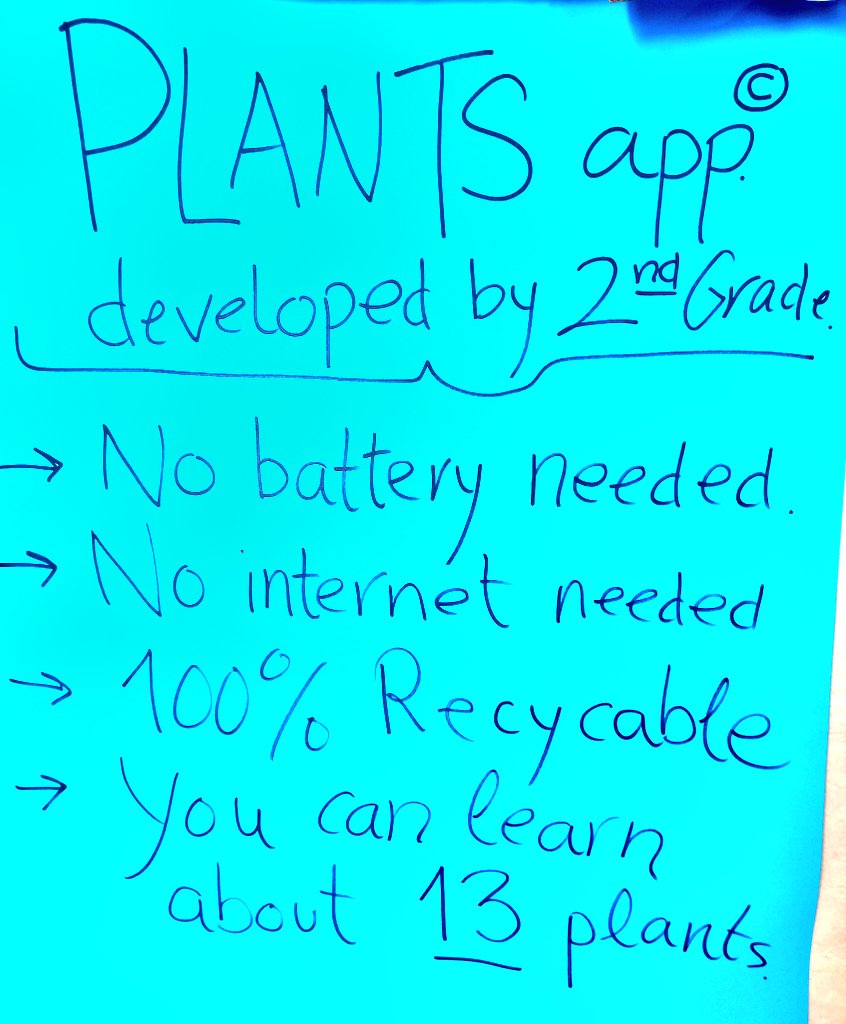 PLANTS app. ©
developed by 2nd Grade.
→ No battery needed.
→ No internet needed
→ 100% Recycable
→ You can learn
about 13 plants.